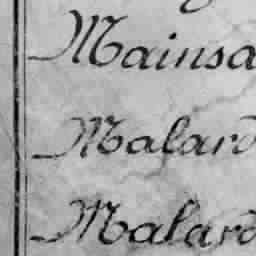 Mainsa
Malard
Malard